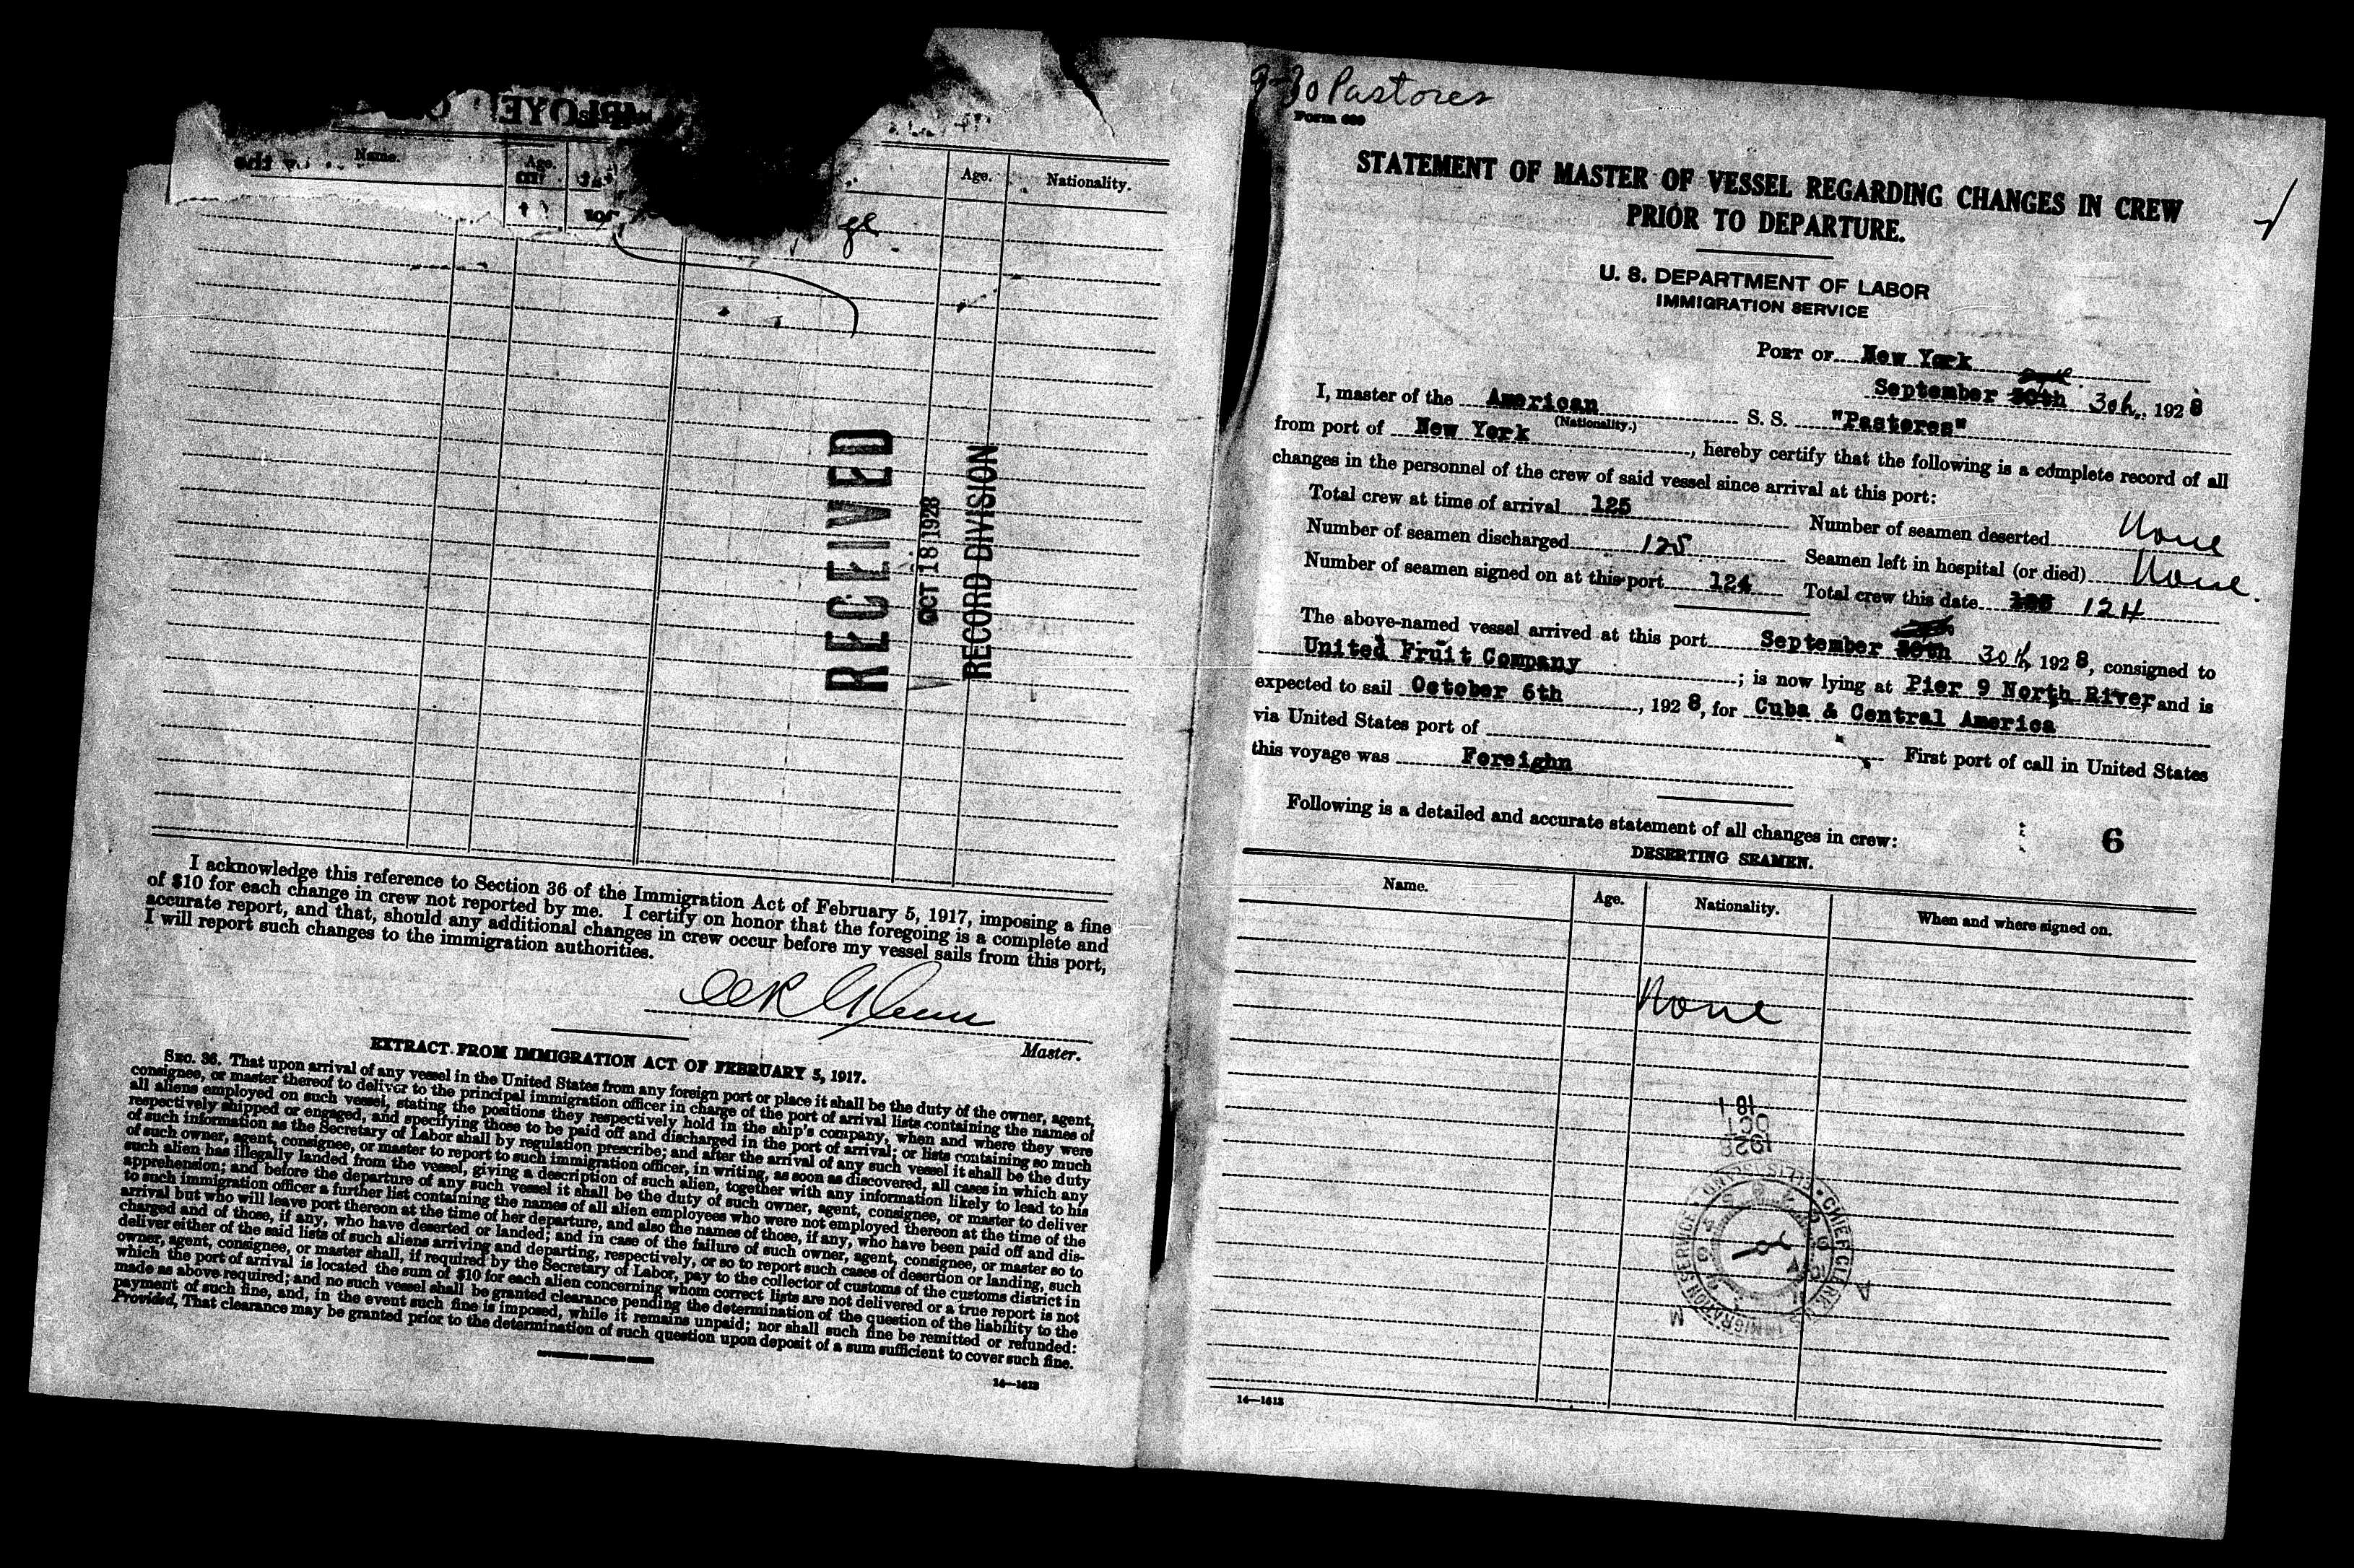 Name.
Age.
Age.
Nationality.
ge
RECEIVED
OCT 18 1928
RECORD DIVISION
I acknowledge this reference to Section 36 of the Immigration Act of February 5, 1917, imposing a fine
of $10 for each change in crew not reported by me. I certify on honor that the foregoing is a complete and
accurate report, and that, should any additional changes in crew occur before my vessel sails from this port,
I will report such changes to the immigration authorities.
Master.
EXTRACT FROM IMMIGRATION ACT OF FEBRUARY 5, 1917.
SEC. 36. That upon arrival of any vessel in the United States from any foreign port or place it shall be the duty of the owner, agent,
consignee, or master thereof to deliver to the principal immigration officer in charge of the port of arrival lists containing the names of
all aliens employed on such vessel, stating the positions they respectively hold in the ship's company, when and where they were
respectively shipped or engaged, and specifying those to be paid off and discharged in the port of arrival; or lists containing so much
of such information as the Secretary of Labor shall by regulation prescribe; and after the arrival of any such vessel it shall be the duty
of such owner, agent, consignee, or master to report to such immigration officer, in writing, as soon as discovered, all cases in which any
such alien has illegally landed from the vessel, giving a description of such alien, together with any information likely to lead to his
apprehension; and before the departure of any such vessel it shall be the duty of such owner, agent, consignee, or master to deliver
to such immigration officer a further list containing the names of all alien employees who were not employed thereon at the time of the
arrival but who will leave port thereon at the time of her departure, and also the names of those, if any, who have been paid off and dis-
charged and of those, if any, who have deserted or landed; and in case of the failure of such owner, agent, consignee, or master so to
deliver either of the said lists of such aliens arriving and departing, respectively, or so to report such cases of desertion or landing, such
owner, agent, consignee, or master shall, if required by the Secretary of Labor, pay to the collector of customs of the customs district in
which the port of arrival is located the sum of $10 for each alien concerning whom correct lists are not delivered or a true report is not
made as above required; and no such vessel shall be granted clearance pending the determination of the question of the liability to the
payment of such fine, and, in the event such fine is imposed, while it remains unpaid; nor shall such fine be remitted or refunded:
Provided, That clearance may be granted prior to the determination of such question upon deposit of a sum sufficient to cover such fine.
14—1613
9-30 Pastores
Form 689
STATEMENT OF MASTER OF VESSEL REGARDING CHANGES IN CREW
PRIOR TO DEPARTURE.
U. S. DEPARTMENT OF LABOR
IMMIGRATION SERVICE
PORT OF New York
September 30th, 1928
I, master of the American S. S. "Pastores"
(Nationality.)
from port of New York, hereby certify that the following is a complete record of all
changes in the personnel of the crew of said vessel since arrival at this port:
Total crew at time of arrival 125 Number of seamen deserted None
Number of seamen discharged 125 Seamen left in hospital (or died) None.
Number of seamen signed on at this port 124 Total crew this date 124
The above-named vessel arrived at this port September 30th, 1928, consigned to
United Fruit Company; is now lying at Pier 9 North River, and is
expected to sail October 6th, 1928, for Cuba & Central America
via United States port of First port of call in United States
this voyage was Foreighn
Following is a detailed and accurate statement of all changes in crew:
6
DESERTING SEAMEN.
Name. Age. Nationality. When and where signed on.
None
18
OCT
1928
CHIEF CLERK
IMMIGRATION SERVICE
14—1613